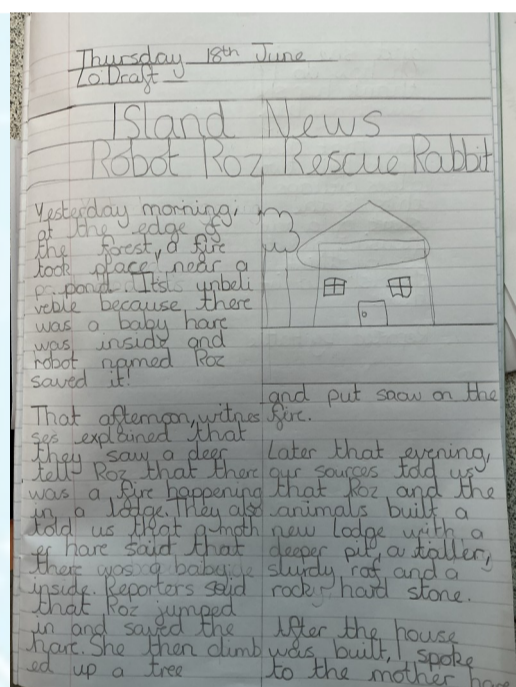 Thursday 18th June
LO:Draft
Island News
Robot Roz Rescue Rabbit
Yesterday morning,
at the edge of
the forest, a fire
took place near a
pond. Its unbeli
veble because there
was a baby hare
was inside and
robot named Roz
saved it!
That afternoon, witnes
ses explained that
they saw a deer
tell Roz that there
was a fire happening
in a lodge. They also
told us that a moth
er hare said that
there was a baby
inside. Reporters said
that Roz jumped
in and saved the
hare. She then climb
ed up a tree
and put saow on the
fire.
Later that evening,
our sources told us
that Roz and the
animals built a
new lodge with a
deeper pit, a taller,
sturdy rof and a
rock hard stone.
After the house
was built, I spoke
to the mother hare